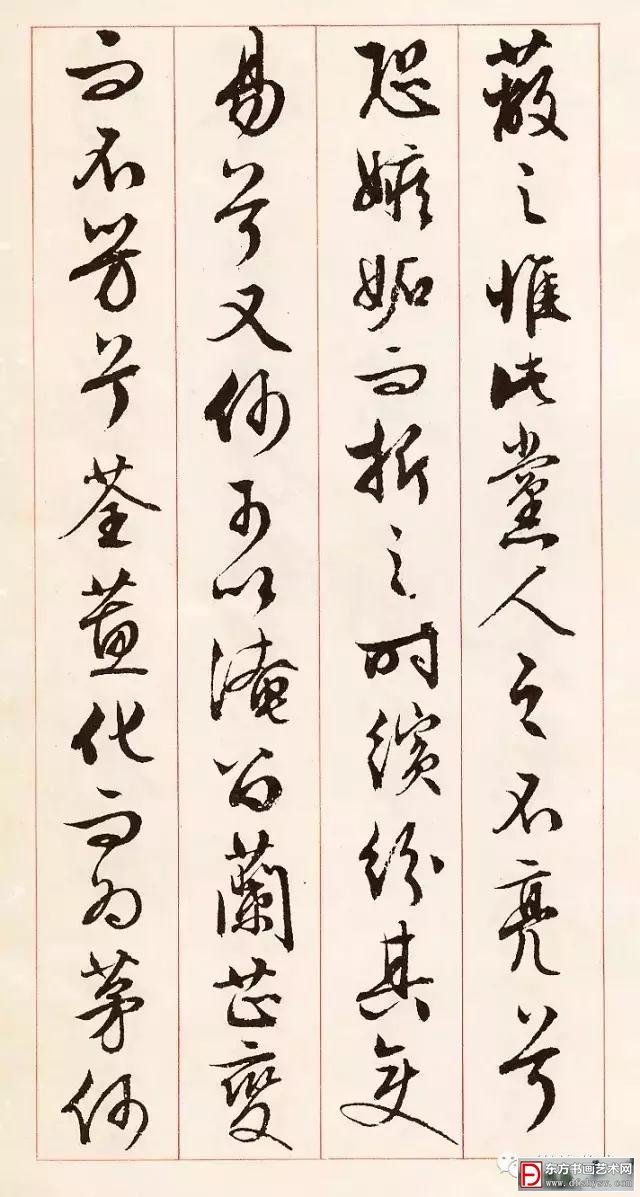 蔽之惟此黨人之不亮兮
恐嫉妬而折之時繽紛其變
易兮又何可以淹留蘭芷變
而不芳兮荃蕙化而為茅何
东方书画艺术网
www.dfshysw.com